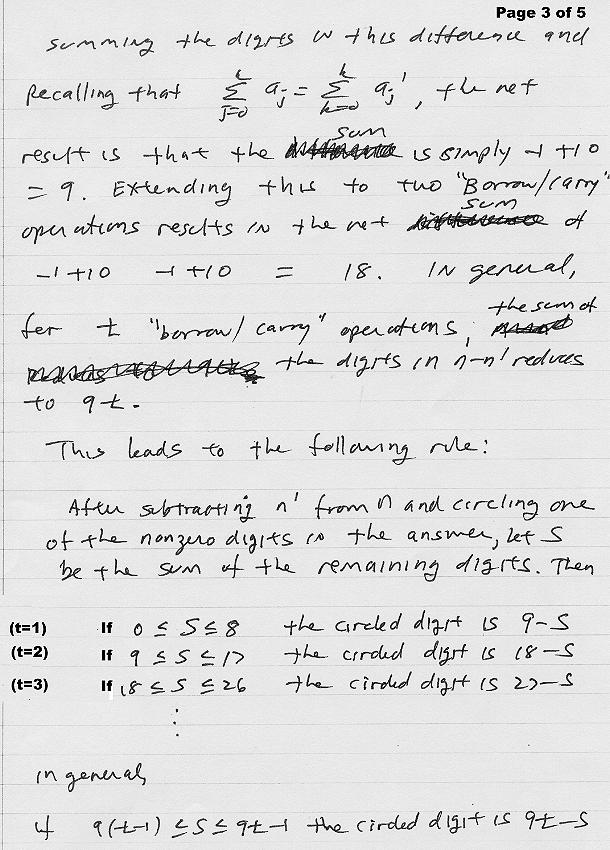 Page 3 of 5
summing the digits in this difference and
recalling that \sum_{j=0}^{k} a_j = \sum_{k=0}^{k} a_j', the net
sum
result is that the is simply -1 +10
= 9. Extending this to two "Borrow/carry"
sum
operations results in the net of
-1 +10 -1 +10 = 18. In general,
the sum of
for t "borrow/carry" operations,
the digits in n-n' reduces
to 9t.
This leads to the following rule:
After subtracting n' from n and circling one
of the nonzero digits in the answer, let S
be the sum of the remaining digits. Then
(t=1) If 0 ≤ S ≤ 8 the circled digit is 9-S
(t=2) If 9 ≤ S ≤ 17 the circled digit is 18-S
(t=3) If 18 ≤ S ≤ 26 the circled digit is 27-S
⋮
in general,
if 9(t-1) ≤ S ≤ 9t-1 the circled digit is 9t-S